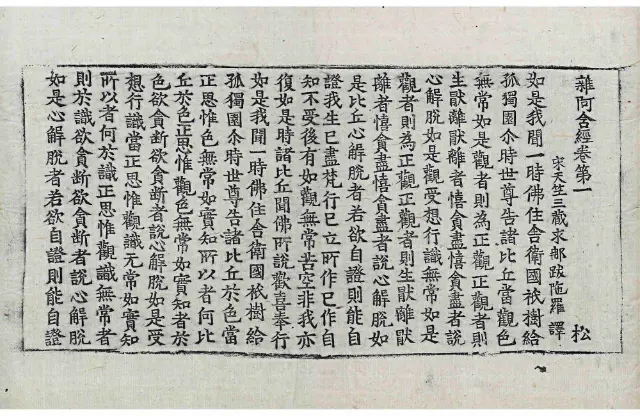 雜阿含經卷第一 松
宋天竺三藏求那跋陁羅譯
如是我聞一時佛住舍衛國祇樹給
孤獨園尒時世尊告諸比丘當觀色
無常如是觀者則為正觀正觀者則
生猒離猒離者憙貪盡憙貪盡者說
心解脫如是觀受想行識無常如是
觀者則為正觀正觀者則生猒離猒
離者憙貪盡憙貪盡者說心解脫如
是比丘心解脫者若欲自證則能自
證我生已盡梵行已立所作已作自
知不受後有如觀無常苦空非我亦
復如是時諸比丘聞佛所說歡喜奉行
如是我聞一時佛住舍衛國祇樹給
孤獨園尒時世尊告諸比丘於色當
正思惟色無常如實知所以者何比
丘於色正思惟觀色無常如實知者於
色欲貪斷欲貪斷者說心解脫如是受
想行識當正思惟觀識无常如實知
所以者何於識正思惟觀識無常者
則於識欲貪斷欲貪斷者說心解脫
如是心解脫者若欲自證則能自證